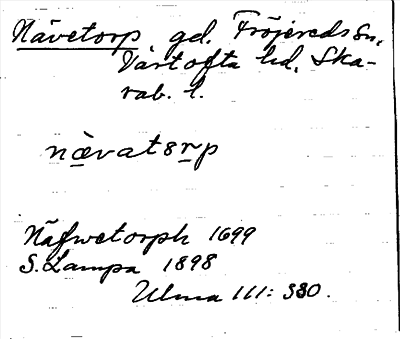 Nävetorp gd. Fröjereds sn,
Vartofta hd, Ska-
rab. l.
nävatorp
Näfwetorph 1699
S. Lampa 1898
Ulma 111: 330.